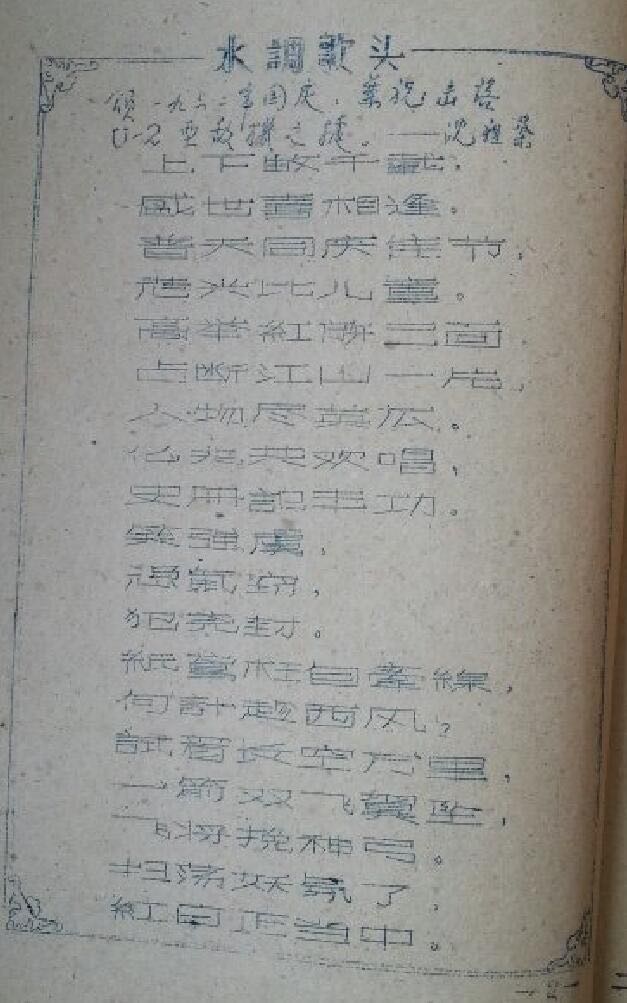 水調歌头
頌一九六二年国庆，兼祝击落
U-2 亚敌機之捷。——沈祖棻
上下数千载，
盛世喜相逢。
普天同庆佳节，
光比儿童。
高举紅旂三面，
占断江山一片，
人物尽英雄。
亿兆共欢唱，
史册記丰功。
笑強虜，
氣，
犯尭封。
紙鸢枉自牽線，
何計趂西风？
試看长空万里，
一箭双飞翼坠，
飞将挽神弓。
扫荡妖氛了，
紅日正当中。